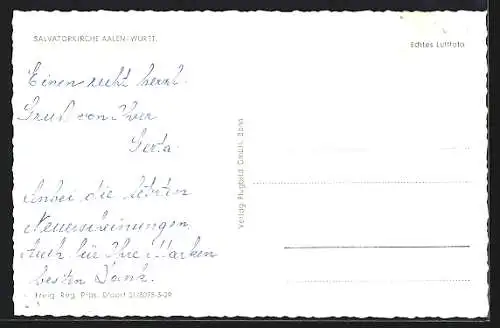 SALVATORKIRCHE AALEN-WÜRTT.
Echtes Luftfoto
Einen recht herzl.
Gruß von Ihrer
Gerta
Anbei die letzten
Neuerscheinungen
Auch für Ihre Marken
besten Dank.
Verlag Flugbild GmbH. Bonn
Freig. Reg. Präs. D'dorf